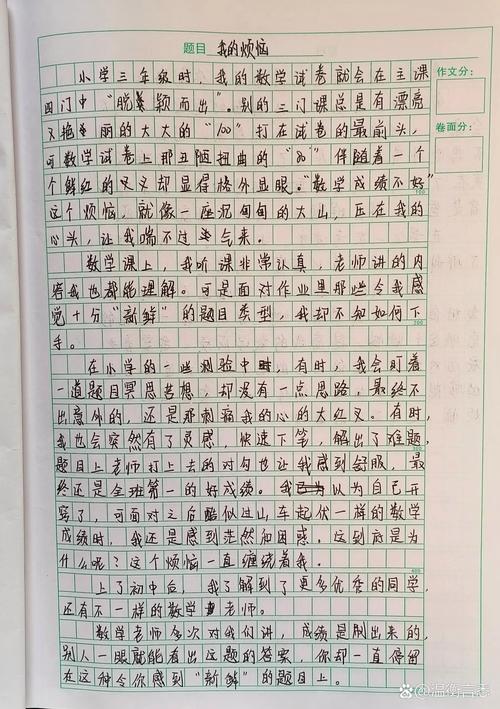 题目 我的烦恼
作文分:
卷面分:
小学三年级时,我的数学试卷就会在主课
四门中“脱颖而出”。别的三门课总是有漂亮
又艳丽的大大的“100”打在试卷的最前头,
可数学试卷上那丑陋扭曲的“80”伴随着一个
个鲜红的叉叉却显得格外显眼。“数学成绩不好”
100
这个烦恼,就像一座沉甸甸的大山,压在我的
心头,让我喘不过气来。
数学课上,我听课非常认真,老师讲的内
容我也都能理解。可是面对作业里那些令我感
觉十分“新鲜”的题目类型,我却不知如何下
200
手。
在小学的一些测验中时,有时,我会盯着
一道题目冥思苦想,却没有一点思路,最终不
出意外的,还是那刺痛我的心的大红叉。有时,
我也会突然有了灵感,快速下笔,解出了难题,
300
题目上老师打上去的对勾也让我感到舒服,最
终还是全班第一的好成绩。我以为自己开
窍了,可面对之后酷似过山车起伏一样的数学
成绩时,我还是感到茫然和困惑。这到底是为
什么呢?这个烦恼一直缠绕着我。
400
上了初中后,我了解到了更多优秀的同学,
还有不一样的数学老师。
数学老师多次对我们讲,成绩是刷出来的,
别人一眼就能看出这题的答案,你却一直停留
在这种令你感到“新鲜”的题目上。
@温衡言志